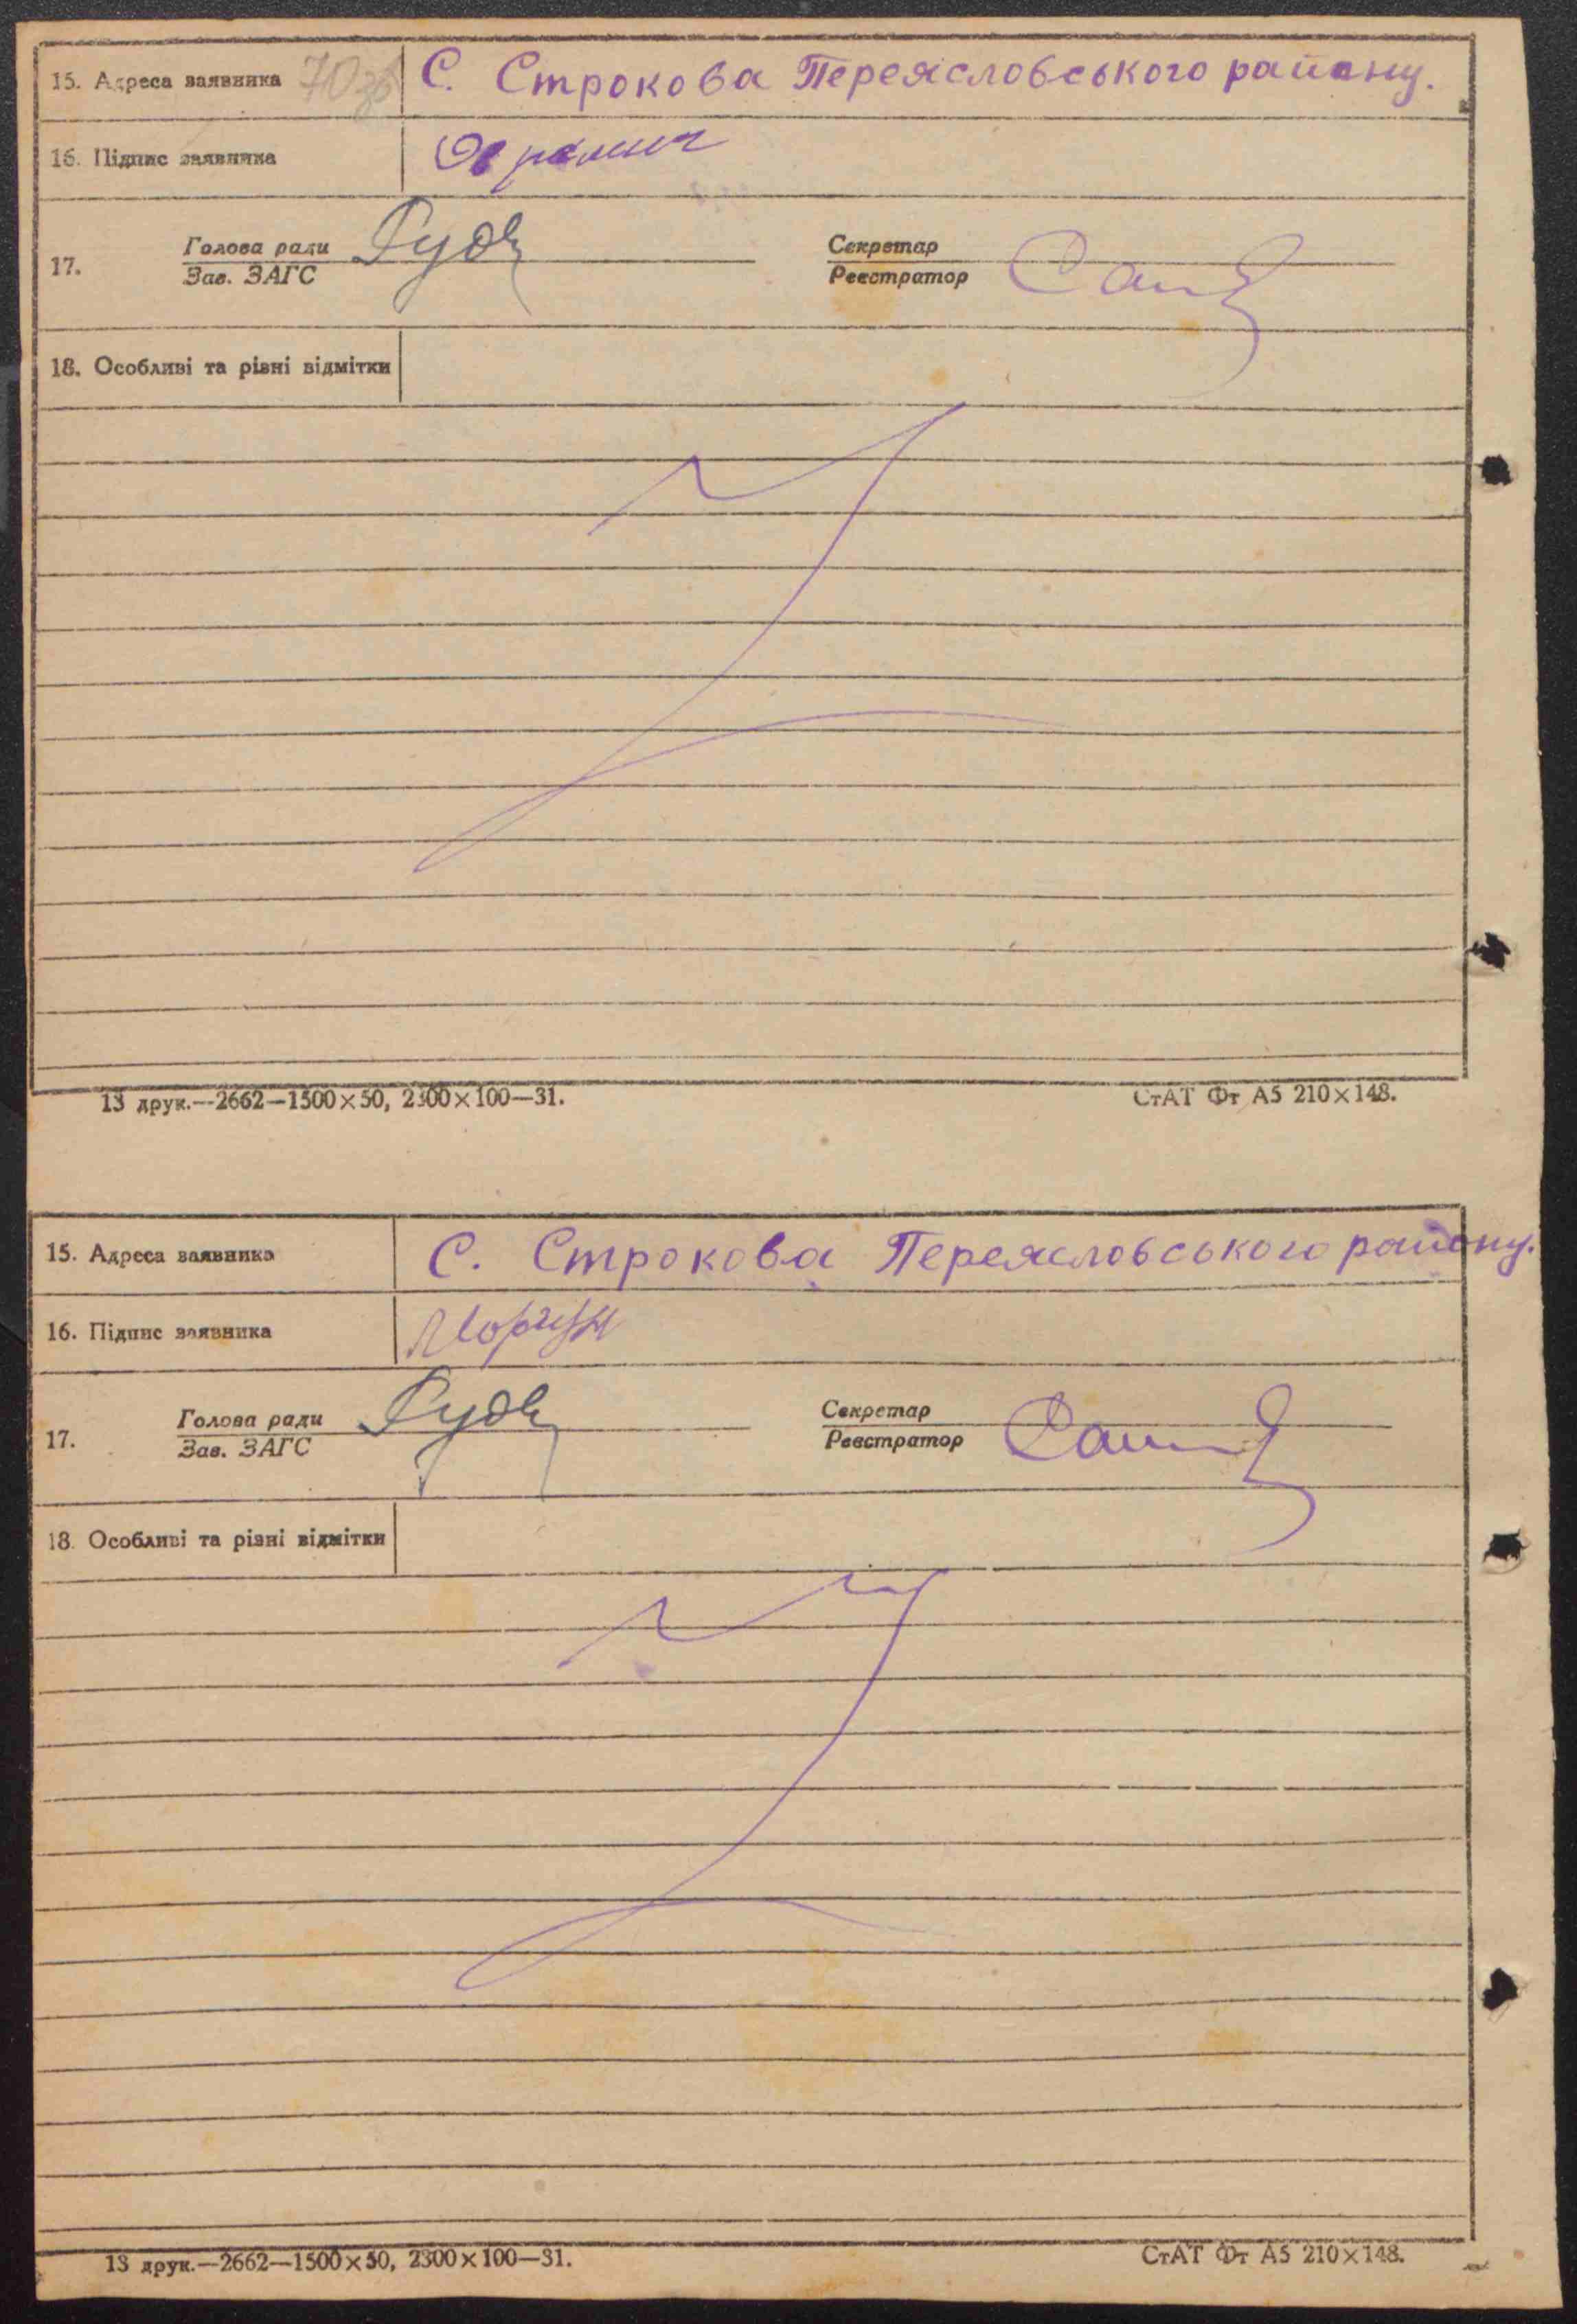 15. Адреса заявника 70 зв С. Строкова Переясловського району.
16. Підпис заявника
17. Голова ради Секретар
Зав. ЗАГС Реєстратор
18. Особливі та різні відмітки
13 друк.—2662—1500×50, 2300×100—31. СтАТ Фт А5 210×148.
15. Адреса заявника С. Строкова Переясловського району.
16. Підпис заявника
17. Голова ради Секретар
Зав. ЗАГС Реєстратор
18. Особливі та різні відмітки
13 друк.—2662—1500×50, 2300×100—31. СтАТ Фт А5 210×148.